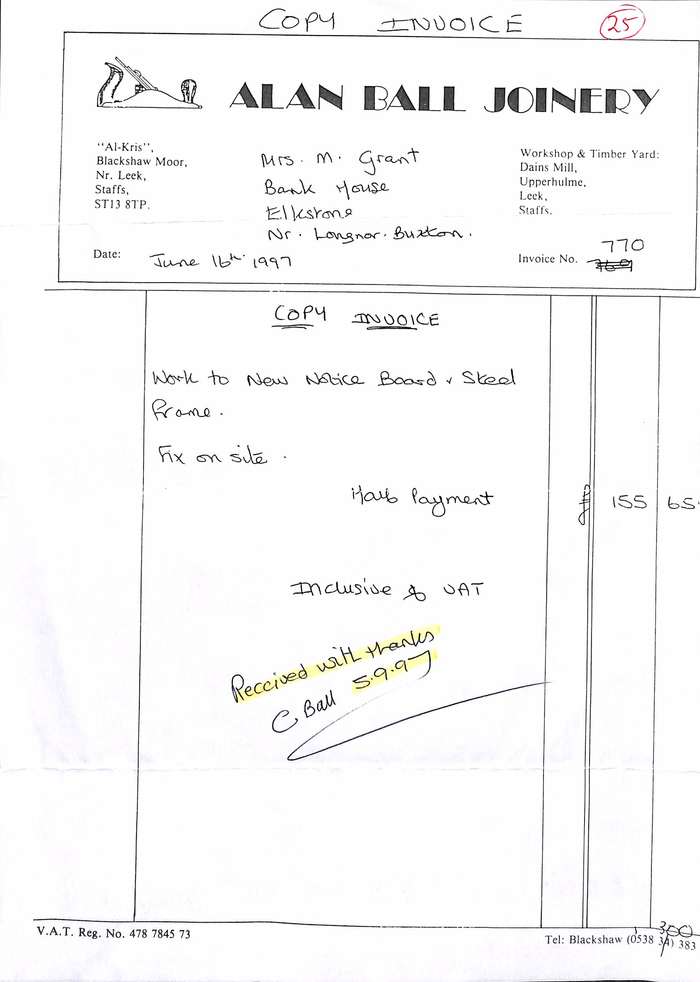 COPY INVOICE
25
ALAN BALL JOINERY
"Al-Kris",
Blackshaw Moor,
Nr. Leek,
Staffs,
ST13 8TP.
Mrs. M. Grant
Bank House
Elkstone
Nr. Longnor. Buxton.
Workshop & Timber Yard:
Dains Mill,
Upperhulme,
Leek,
Staffs.
Date: June 16th 1997
770
Invoice No. 769
COPY INVOICE
Work to New Notice Board & Steel
Frame.
Fix on site.
Half Payment £ 155 65
Inclusive of VAT
Received with thanks
C Ball 5.9.97
V.A.T. Reg. No. 478 7845 73
300
Tel: Blackshaw (0538 34) 383